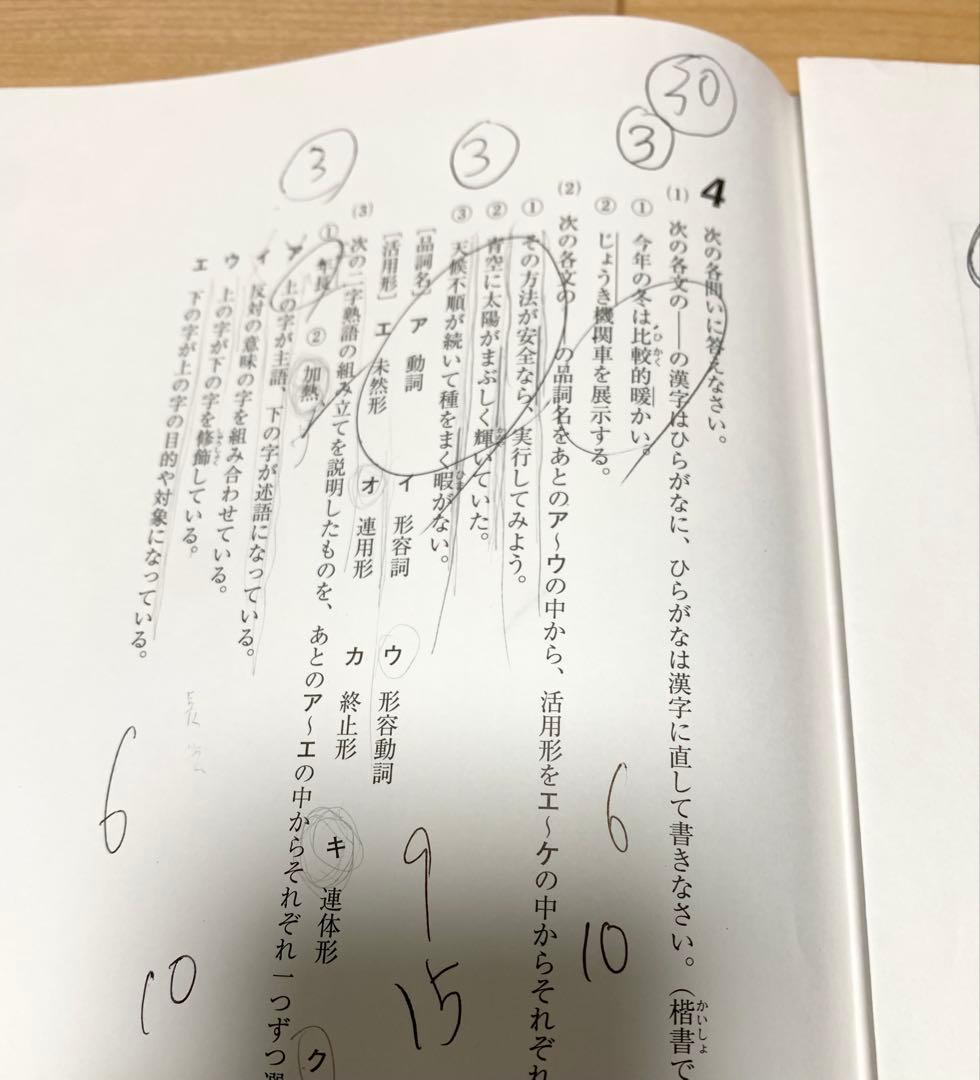 30
3
4 次の各問いに答えなさい。
(1) 次の各文の――の漢字はひらがなに、ひらがなは漢字に直して書きなさい。(楷書で
かいしょ
① 今年の冬は比較的暖かい。
ひかく
② じょうき機関車を展示する。
6
10
3
(2) 次の各文の――の品詞名をあとのア〜ウの中から、活用形をエ〜ケの中からそれぞれ
① その方法が安全なら、実行してみよう。
② 青空に太陽がまぶしく輝いていた。
③ 天候不順が続いて種をまく暇がない。
ひま
[品詞名] ア 動詞 イ 形容詞 ウ 形容動詞
[活用形] エ 未然形 オ 連用形 カ 終止形 キ 連体形 ク
9
15
3
(3) 次の二字熟語の組み立てを説明したものを、あとのア〜エの中からそれぞれ一つずつ選
① 年長 ② 加熱
ア 上の字が主語、下の字が述語になっている。
イ 反対の意味の字を組み合わせている。
ウ 上の字が下の字を修飾している。
しゅうしょく
エ 下の字が上の字の目的や対象になっている。
6
10